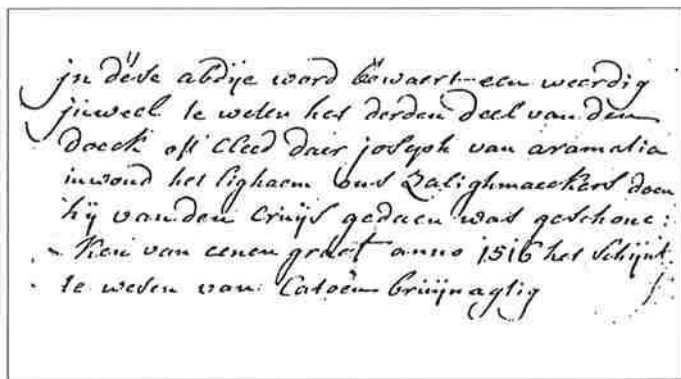 in dese abdije word bewaert een weerdig
juweel te weten het derden deel van den
doeck oft Cleed dair joseph van aramatia
inwond het lighaem ons Zalighmaeckers doen
hij van den Cruijs gedaen was geschonc:
ken van eenen graef anno 1516 het schijnt
te wesen van Catoen bruijnagtig